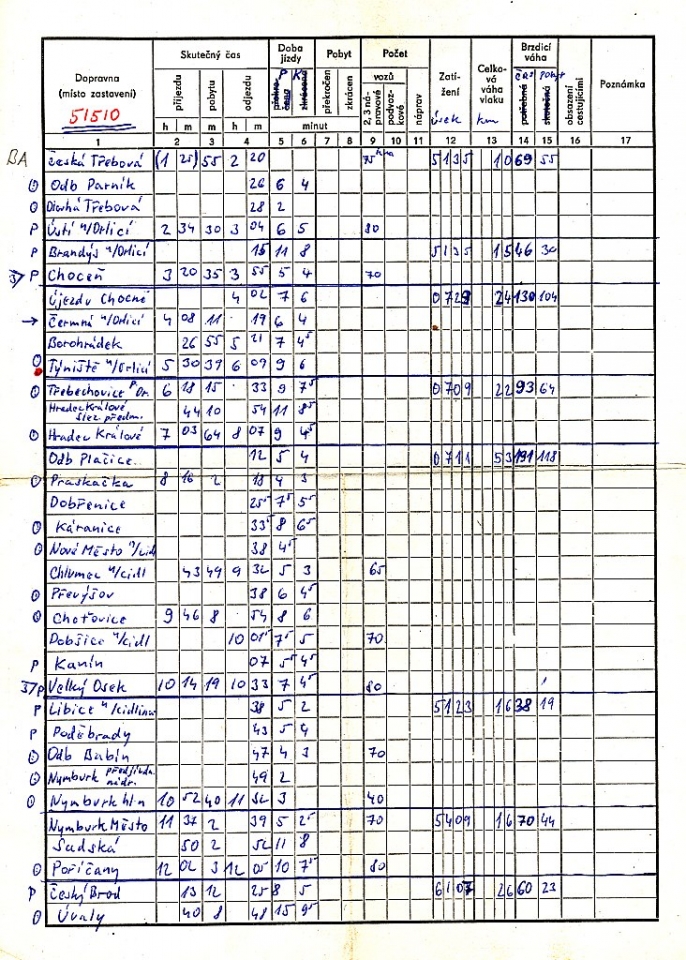 Dopravna (místo zastavení) Skutečný čas Doba jízdy Pobyt Počet Zatížení Celková váha vlaku Brzdicí váha obsazení cestujícími Poznámka
51510 příjezdu pobytu odjezdu P K překročen zkrácen vozů 2, 3 nápravové podvozkové náprav úsek km čas pobyt potřebná skutečná
h m m h m minut
1 2 3 4 5 6 7 8 9 10 11 12 13 14 15 16 17
BA Česká Třebová (1 25) 55 2 20 75 5135 10 69 55
Odb Parník 26 6 4
Dlouhá Třebová 28 2
P Ústí n/Orlicí 2 34 30 3 04 6 5 80
P Brandýs n/Orlicí 15 11 8 5135 15 46 30
P Choceň 3 20 35 3 55 5 4 70
Újezd u Chocně 4 02 7 6 24 130 104
→ Čermná n/Orlicí 4 08 11 19 6 4
Borohrádek 26 55 5 21 7 4⁵
Týniště n/Orlicí 5 30 39 6 09 9 6
Třebechovice p Or. 6 18 15 33 9 7⁵ 0709 22 93 64
Hradec Králové Slez. předm. 44 10 54 11 8⁵
Hradec Králové 7 03 64 8 07 9 4⁵
Odb Plačice 12 5 4 0711 53 191 118
Praskačka 8 16 2 18 4 3
Dobřenice 25⁵ 7⁵ 5⁵
Káranice 33⁵ 8 6⁵
Nové Město n/Cidl 38 4⁵
Chlumec n/Cidl 43 49 9 32 5 3 65
Převýšov 38 6 4⁵
Choťovice 9 46 8 54 8 6
Dobšice n/Cidl 10 01⁵ 7⁵ 5 70
P Kanín 07 5⁵ 4⁵
37p Velký Osek 10 14 19 10 33 7 4⁵ 80
P Libice n/Cidlinou 38 5 2 5123 16 38 19
P Poděbrady 43 5 4
Odb Babín 47 4 3 70
Nymburk předjízdn. nádr. 49 2
Nymburk hl.n 10 52 40 11 32 3 40
Nymburk Město 11 37 2 39 5 2⁵ 70 5409 16 70 44
Sadská 50 2 52 11 8
Poříčany 12 02 3 12 05 10 7⁵ 80
P Český Brod 13 12 25 8 5 6107 26 60 23
Úvaly 40 8 48 15 9⁵